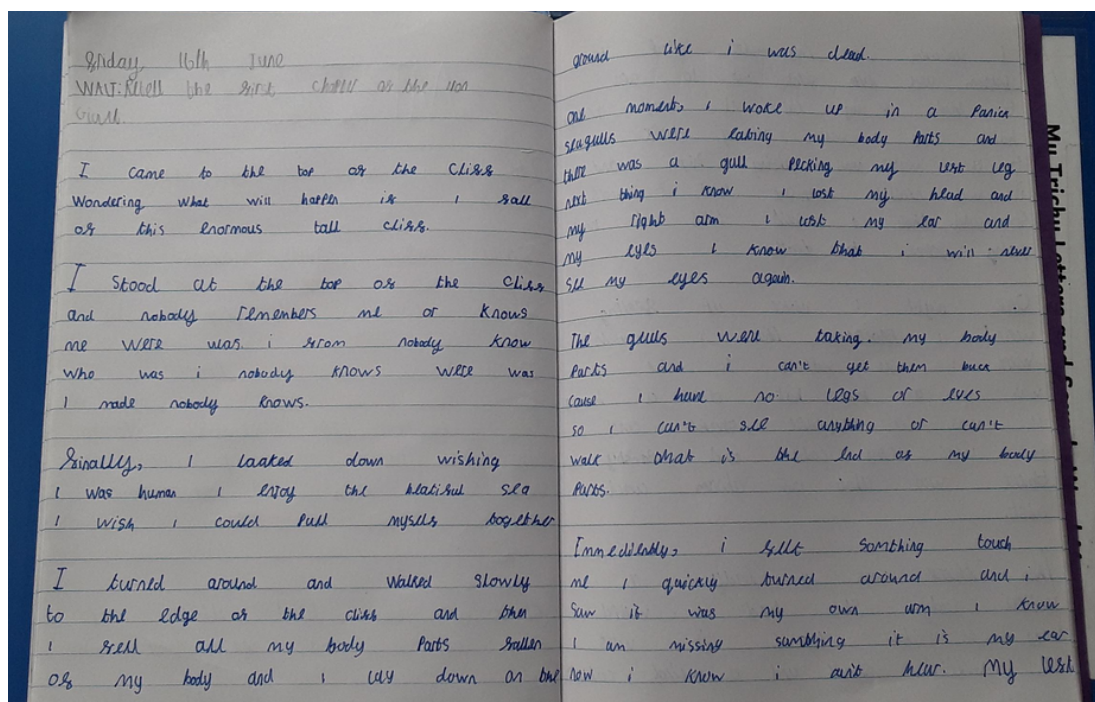 Friday 16th June
WALT: Retell the first chapter of the Iron
Giant
I came to the top of the Cliff
Wondering what will happen if I fall
of this enormous tall cliff.
I Stood at the top of the Cliff
and nobody remembers me or knows
me were was i from nobody know
who was i nobody knows were was
I made nobody knows.
Finally, I looked down wishing
I was human I enjoy the beatiful sea
I wish I could Pull myself together
I turned around and walked slowly
to the edge of the cliff and then
I fell all my body Parts fallen
of my body and I lay down on the
ground like i was dead.
one moments, I woke up in a Panick
seagulls were eating my body Parts and
there was a gull Pecking my left leg
next thing i know I lost my head and
my right arm I lost my ear and
my eyes I know that i will never
see my eyes again.
The gulls were taking my body
Parts and i can't get them back
cause I have no legs or eyes
so I can't see anything or can't
walk that is the end of my body
Parts.
Immedietly, i felt somthing touch
me I quickly turned around and i
saw it was my own arm I know
I am missing somthing it is my ear
now i know i can't hear. My left
My Trishy Letters and